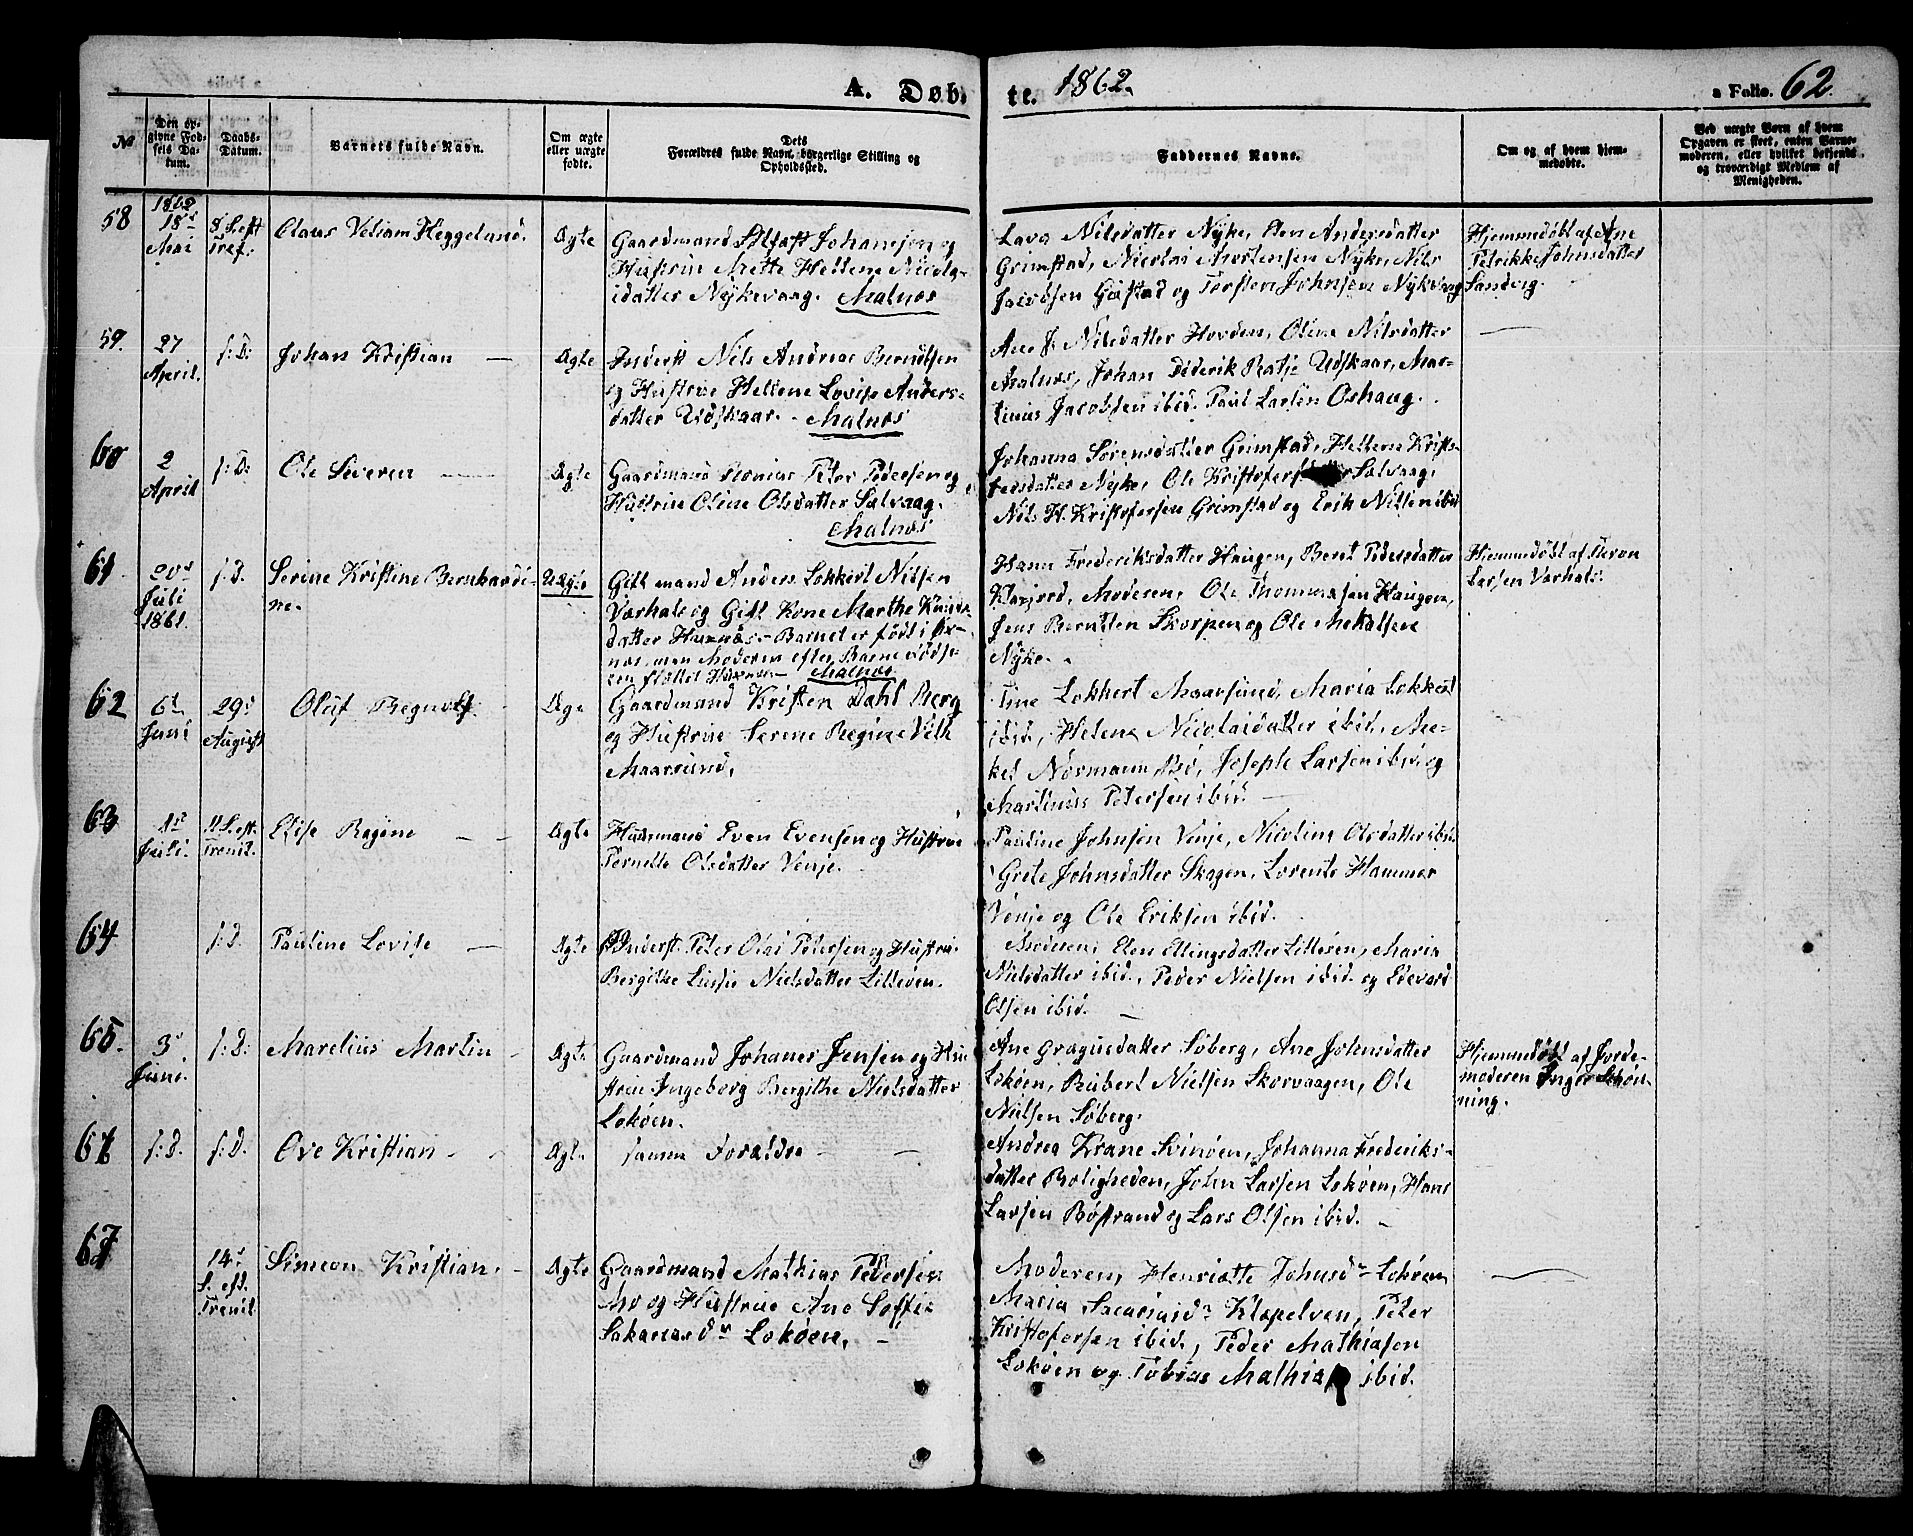 A. Døb-
te.
1862.
a Folio. 62
No
Den opgivne Fødsels Datum.
Daabs-Datum.
Barnets fulde Navn.
Om ægte eller uægte fødte.
Dets Forældres fulde Navn, borgerlige Stilling og Opholdssted.
Faddernes Navne.
Om og af hvem hjemmedøbte.
Ved uægte Børn af hvem Opgaven er skeet, enten Barnemoderen, eller hvilket bekjendt og troværdigt Medlem af Menigheden.
58
1862
18de
Mai
8 S. eft
Tref.
Claus Veliam Heggelund.
Ægte
Gaardmand Johansen og
Hustrue Mette Hellene Nicola-
idatter Nykevaag. Malnæs
Lava Nilsdatter Nyke, Elen Andersdatter
Grimstad, Nicolai Mortensen Nyke, Nils
Jacobsen Gustad og Torsten Johnsen Nykvaag
Hjemmedøbt af Ane
Petrikke Johnsdatter
Sandvig.
59.
27
April.
s: D:
Johan Kristian —
Ægte
Inderst Nils Andreas Berndtsen
og Hustrue Hellene Lovise Anders-
datter Udskaar. - Malnæs
Ane J. Nilsdatter Hovden, Oline Nilsdatter
Malnæs, Johan Diderik Ratje Udskaar, Mar-
tinus Jacobsen ibid. Paul Larsen Oshaug.
60
2
April
s: D:
Ole Severen —
Ægte
Gaardmand Peter Pedersen og
Hustrue Oline Olsdatter Salvaag.
Malnæs
Johanna Sørensdatter Grimstad, Hellene Krist-
Nyke, Ole Kristofersen Salvaag,
Nils H. Kristofersen Grimstad og Erik Nilsen ibid
61
20de
Juli
1861.
s: D.
Serine Kristine Bernhardi-
ne.
Uægte
Gift mand Anders Lokkert Nilsen
Varhals og Gift Kone Marthe Knuds-
datter Husnæs. - Barnet er født i Øx-
næs, men Moderen efter Barnefødse-
len flyttet Malnæs
Hanna Frederiksdatter Haugen, Beret Pedersdatter
Moderen, Ole Thommesen Haugen,
Jens Berntsen Skorpen og Ole Mekalsen
Nyke. -
Hjemmedøbt af
Larsen Varhals.
62
6te
Juni
29de
August
Oluf Regnolf
Ægt.
Gaardmand Kristen Dahl Berg
og Hustrue Serene Regine Veth
Maarsund,
Tine Lokkert Maarsund, Maria Lokkert
ibid, Helena Nicolaidatter ibid, Me-
kel Normann Bø, Joseph Larsen ibid og
Martinus Petersen ibid. —
63
1ste
Juli.
11 S. eft.
Trenit.
Elise Regine — —
Ægte
Huusmand Even Evensen og Hustrue
Pernelle Olsdatter Venje.
Pauline Johnsen Venje, Nicolina Olsdatter ibid.
Grete Johnsdatter Skagen, Lorents Hammer
Venje og Ole Eriksen ibid.
64
s: D.
Pauline Lovise —
Ægte
Inderst Peter Olai Petersen og Hustrue
Bergithe Lusie Nielsdatter Lilleøen.
Moderen, Elen Ellingsdatter Lilleøen, Maria
Nielsdatter ibid., Peder Nielsen ibid. og Edevard
Olsen ibid. —
65.
3de
Juni.
s: D:
Marelius Martin -
Ægte
Gaardmand Johanes Jensen og Hu-
strue Ingeborg Bergithe Nielsdatter
Lokøen.
Ane Gragusdatter Søberg, Ane Johnsdatter
Lokøen, Rubert Nielsen Skorvaagen, Ole
Nielsen Søberg.
Hjemmedøbt af Jorde-
moderen Inger Schøn-
ning.
66
s: D.
s: D.
Ove Kristian - -
Ægte
samme Forældre - —
Andrea Krane Svinøen, Johanna Frederiks-
datter Roligheden, John Larsen Lokøen, Hans
Larsen Bøstrand og Lars Olsen ibid. -
67
14de
S. eft.
Trenit.
Simeon Kristian. -
Ægte
Gaardmand Mathias Pedersen
og Hustrue Ane Soffie
Lokøen, —
Moderen, Henriette Johnsdr Lokøen
Maria Klopelven, Peter
Kristofersen ibid., Peder Mathiasen
Lokøen og Tobias Mathias ibid.